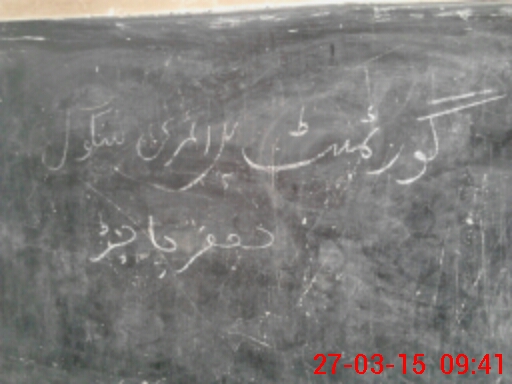 گورنمنٹ پرائمری سکول
جعفر چانڑ
27-03-15 09:41